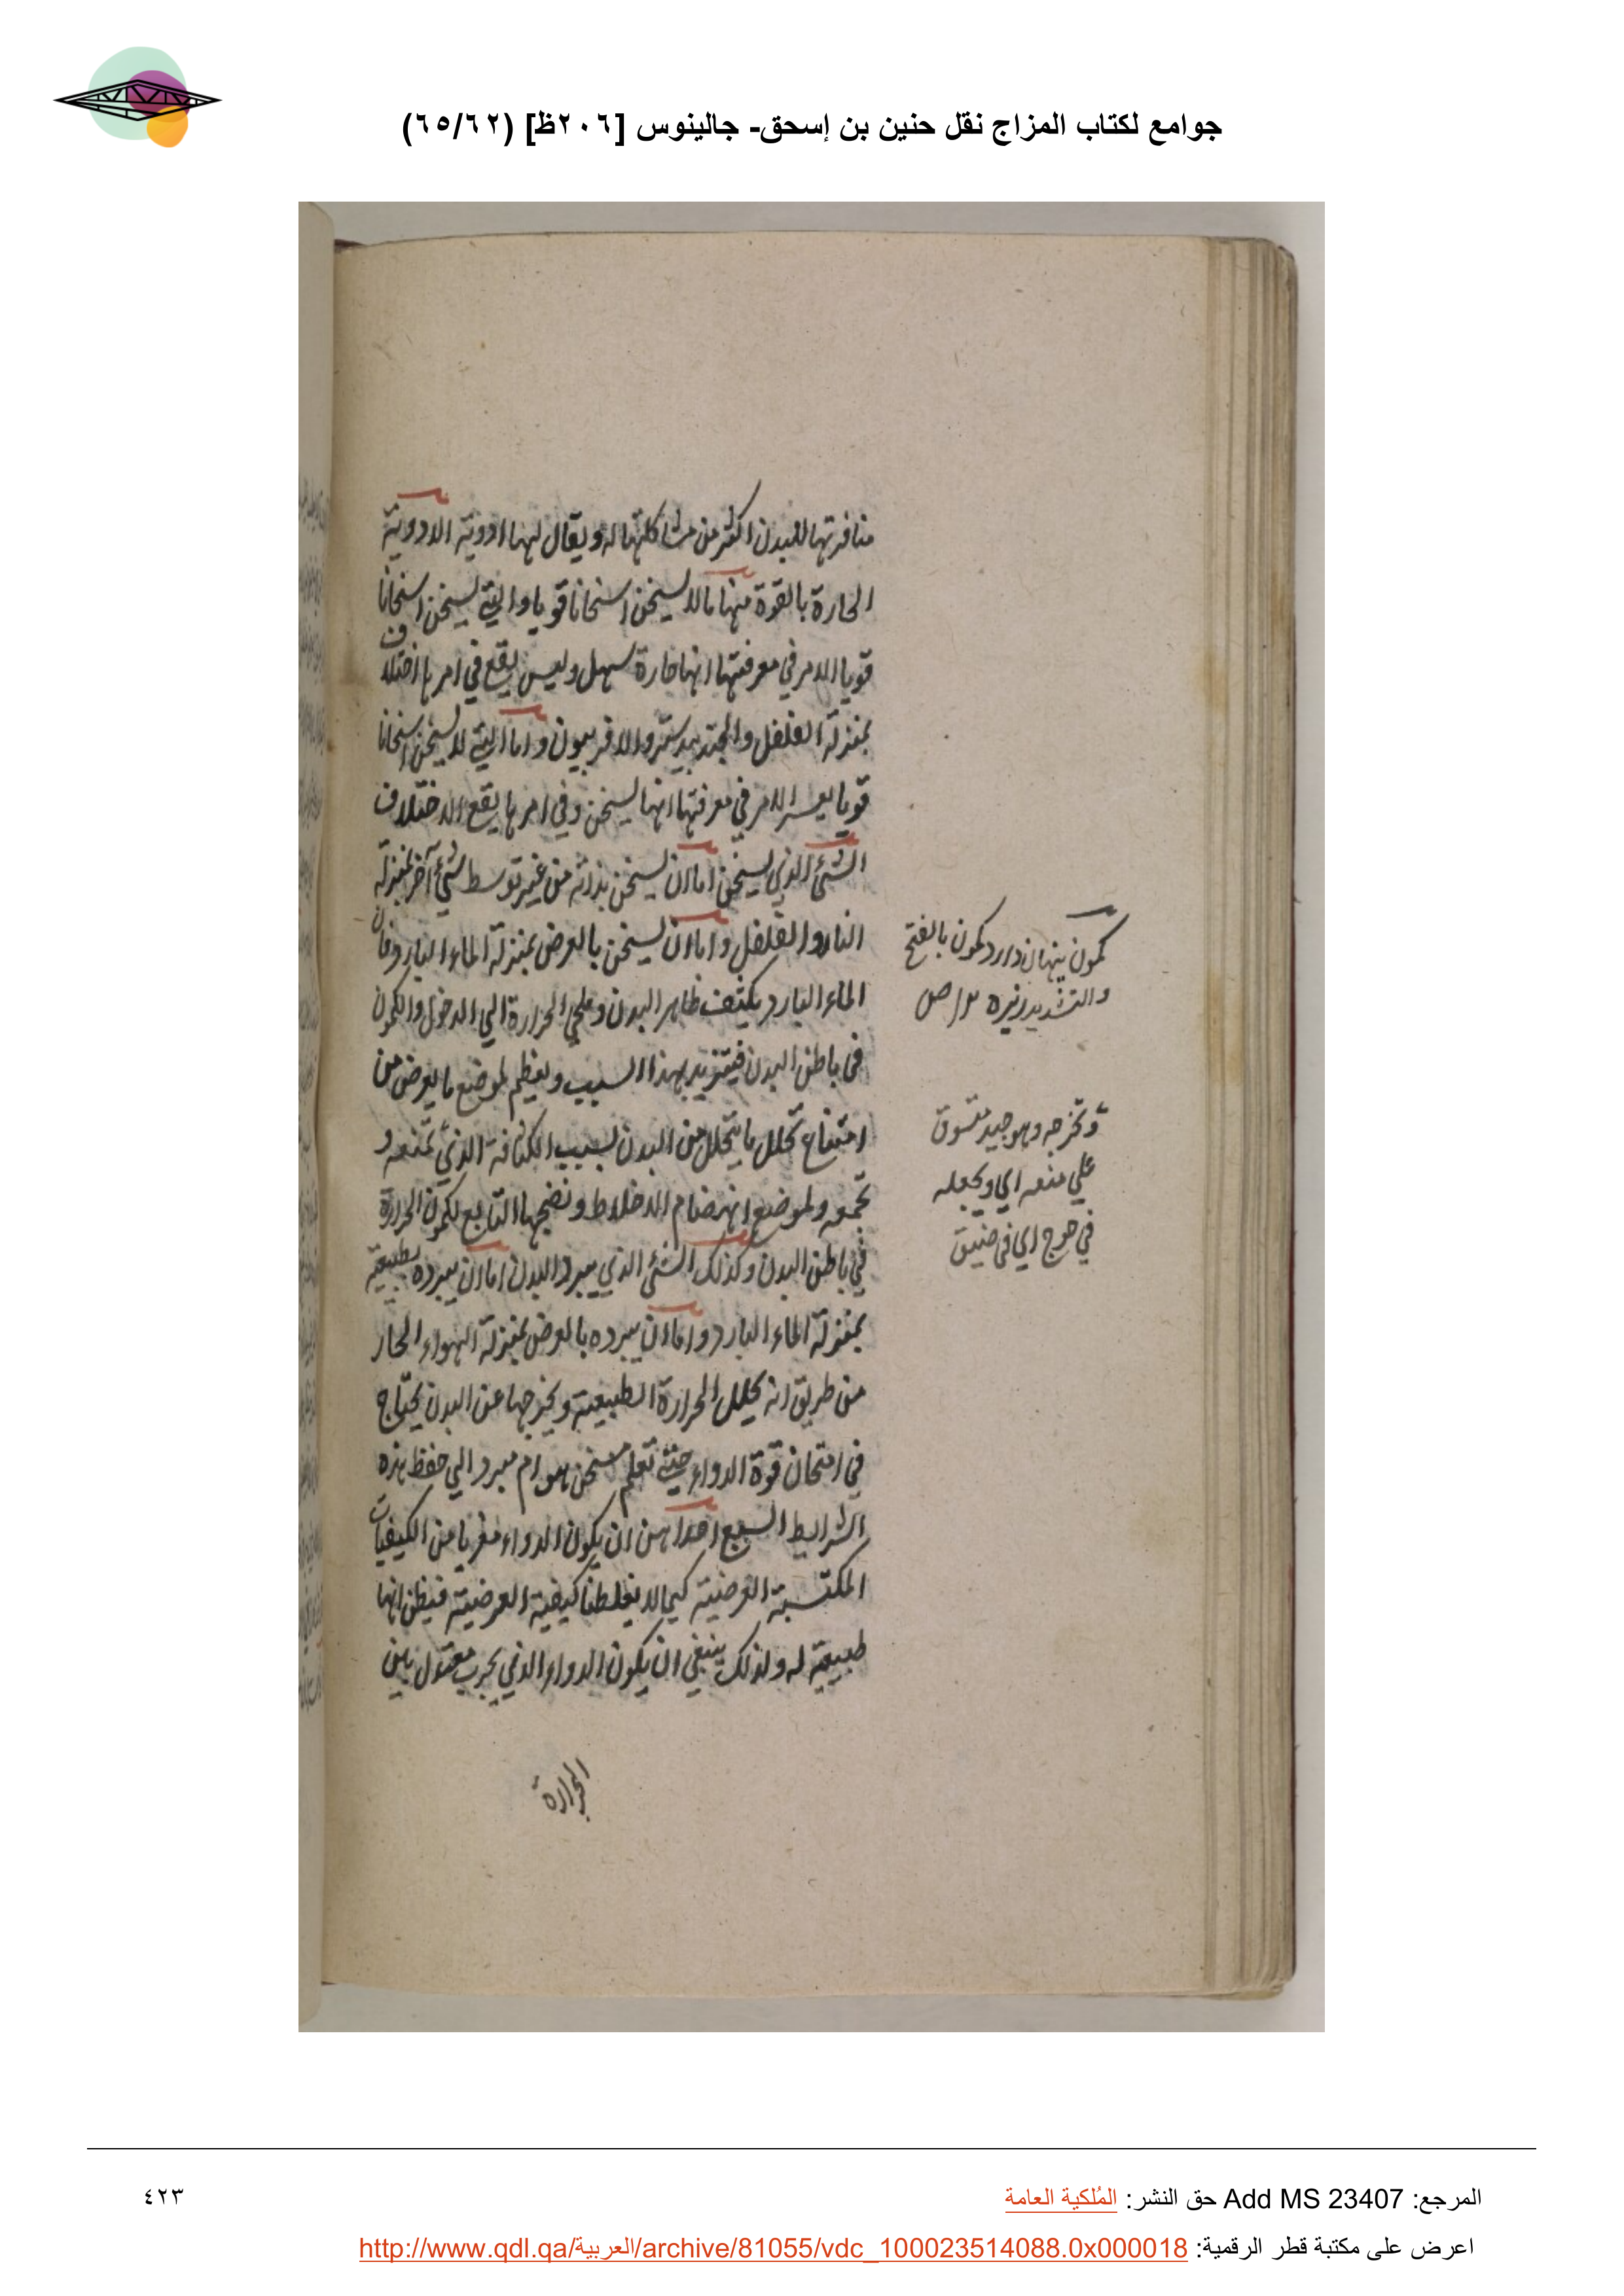 جوامع لكتاب المزاج نقل حنين بن إسحق- جالينوس [٢٠٦ظ] (٦٥/٦٢)
منافرتها للبدن اكثر من مشاكلتها له ويقال لها ادوية الادوية
الحارة بالقوة منها ما لا يسخن اسخانا قويا والتي يسخن اسخانا
قويا الامر في معرفتها انها حارة سهل وليس يقع في امرها اختلاف
بمنزلة الفلفل والجندبيدستر والافربيون واما التي لا يسخن اسخانا
قويا يعسر الامر في معرفتها انها يسخن وفي امرها يقع الاختلاف
الشئ الذي يسخن اما ان يسخن بذاته من غير توسط شئ آخر بمنزلة
النار والفلفل واما ان يسخن بالعرض بمنزلة الماء البارد فان
الماء البارد يكثف ظاهر البدن و الحرارة الي الدخول والكمون
في باطن البدن فيتزيد بهذا السبب ويعظم لموضع ما يعرض من
امتناع تحلل ما يتحلل من البدن بسبب الكثافة الذي تمنعه و
تجمعه ولموضع انهضام الاخلاط ونضجها التابع لكمون الحرارة
في باطن البدن وكذلك الشئ الذي يبرد البدن اما ان يبرده بطبيعته
بمنزلة الماء البارد واما ان يبرده بالعرض بمنزلة الهواء الحار
من طريق انه يحلل الحرارة الطبيعية ويخرجها عن البدن يحتاج
في امتحان قوة الدواء حتي تعلم مسخن هو ام مبرد الي حفظ هذه
الشرايط السبع احداهن ان يكون الدواء معريا من الكيفيات
المكتسبة العرضية كيما لا يغلطنا كيفية العرضية فيظن انها
طبيعية له ولذلك ينبغي ان يكون الدواء الذي يجرب معتدل بين
الحرارة
كمون پنهان دارد كمون بالفتح
والتشديد زيره
وتخرجه وهو جيد منسوق
علي منعه اي ويجعله
في حوج اي في ضيق
المرجع: Add MS 23407 حق النشر: المُلكية العامة
٤٢٣
اعرض على مكتبة قطر الرقمية: http://www.qdl.qa/العربية/archive/81055/vdc_100023514088.0x000018